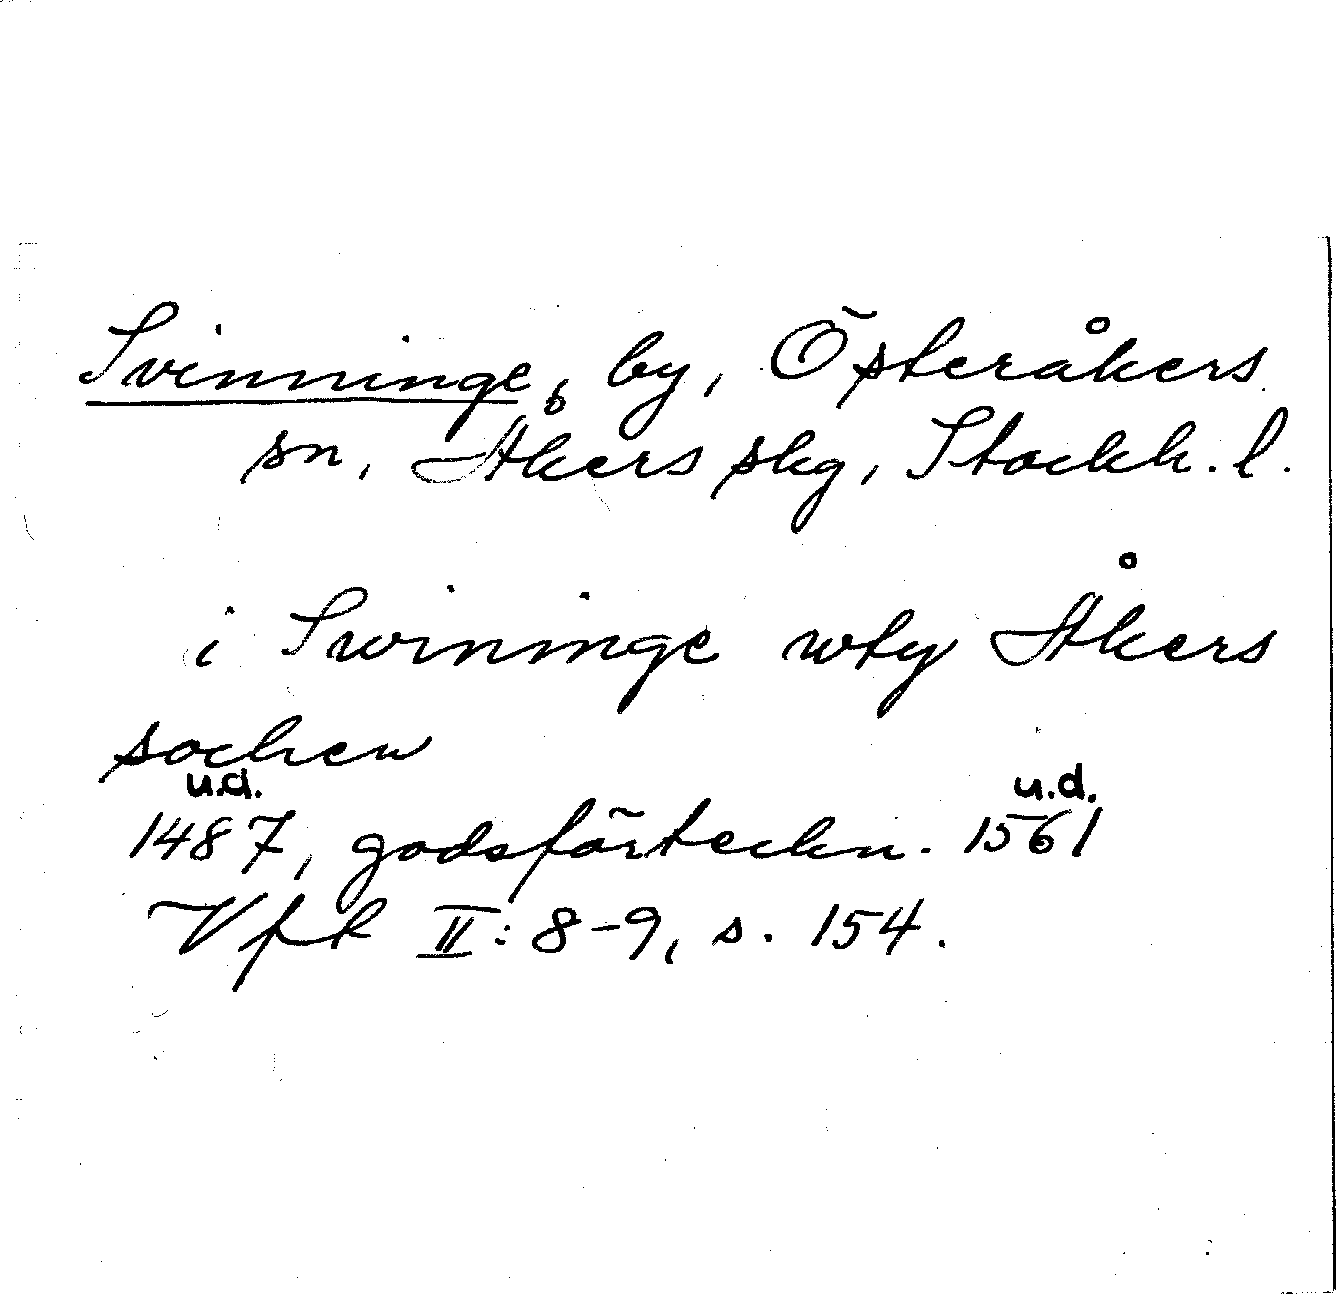 Svinninge, by, Österåkers
sn, Åkers skg, Stockh. l.
i Swininge wty Åkers
sochen
u.d. u.d.
1487, godsförteckn. 1561
Vfr II: 8-9, s. 154.